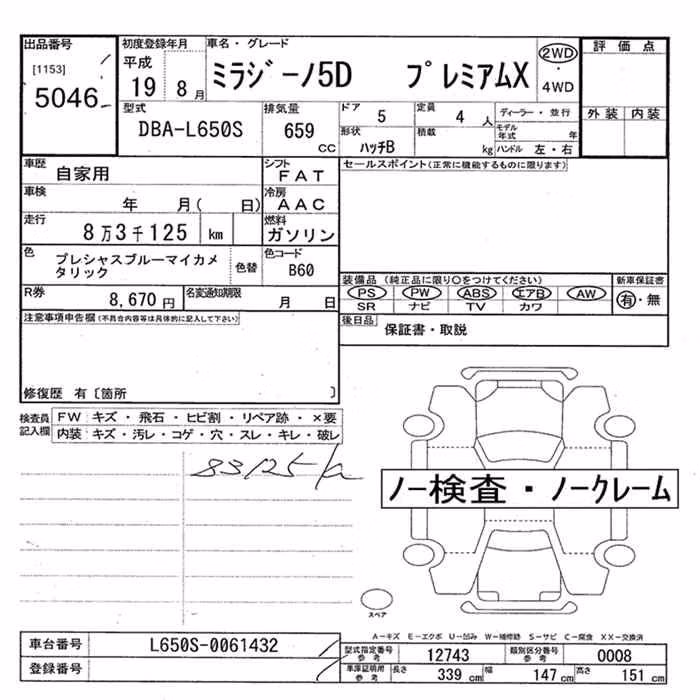 出品番号 初度登録年月 車名・グレード 2WD 評価点
[1153] 平成 ミラジーノ5D プレミアムX ・
5046 19 8月 4WD
型式 排気量 ドア 5 定員 4人 ディーラー・並行 外装 内装
DBA-L650S 659 cc 形状 ハッチB 積載 kg モデル年式 年
ハンドル 左・右
車歴 自家用 シフト FAT セールスポイント(正常に機能するものに限ります)
車検 年 月( 日) 冷房 AAC
走行 8万3千125 km 燃料 ガソリン
色 プレシャスブルーマイカメタリック 色替 色コード B60
装備品 (純正品に限り○をつけてください) 新車保証書
PS PW ABS エアB AW 有・無
SR ナビ TV カワ
R券 8,670円 名変通知期限 月 日
後日品 保証書・取説
注意事項申告欄(不具合内容等は具体的に記入して下さい)
修復歴 有〔箇所 〕
検査員記入欄 FW キズ・飛石・ヒビ割・リペア跡・×要
内装 キズ・汚レ・コゲ・穴・スレ・キレ・破レ
83125/
ノー検査・ノークレーム
スペア
A-キズ E-エクボ U-凹み W-補修跡 S-サビ C-腐食 XX-交換済
車台番号 L650S-0061432 型式指定番号 参考 12743 類別区分番号 参考 0008
登録番号 車庫証明用 参考 長さ 339 cm 幅 147 cm 高さ 151 cm